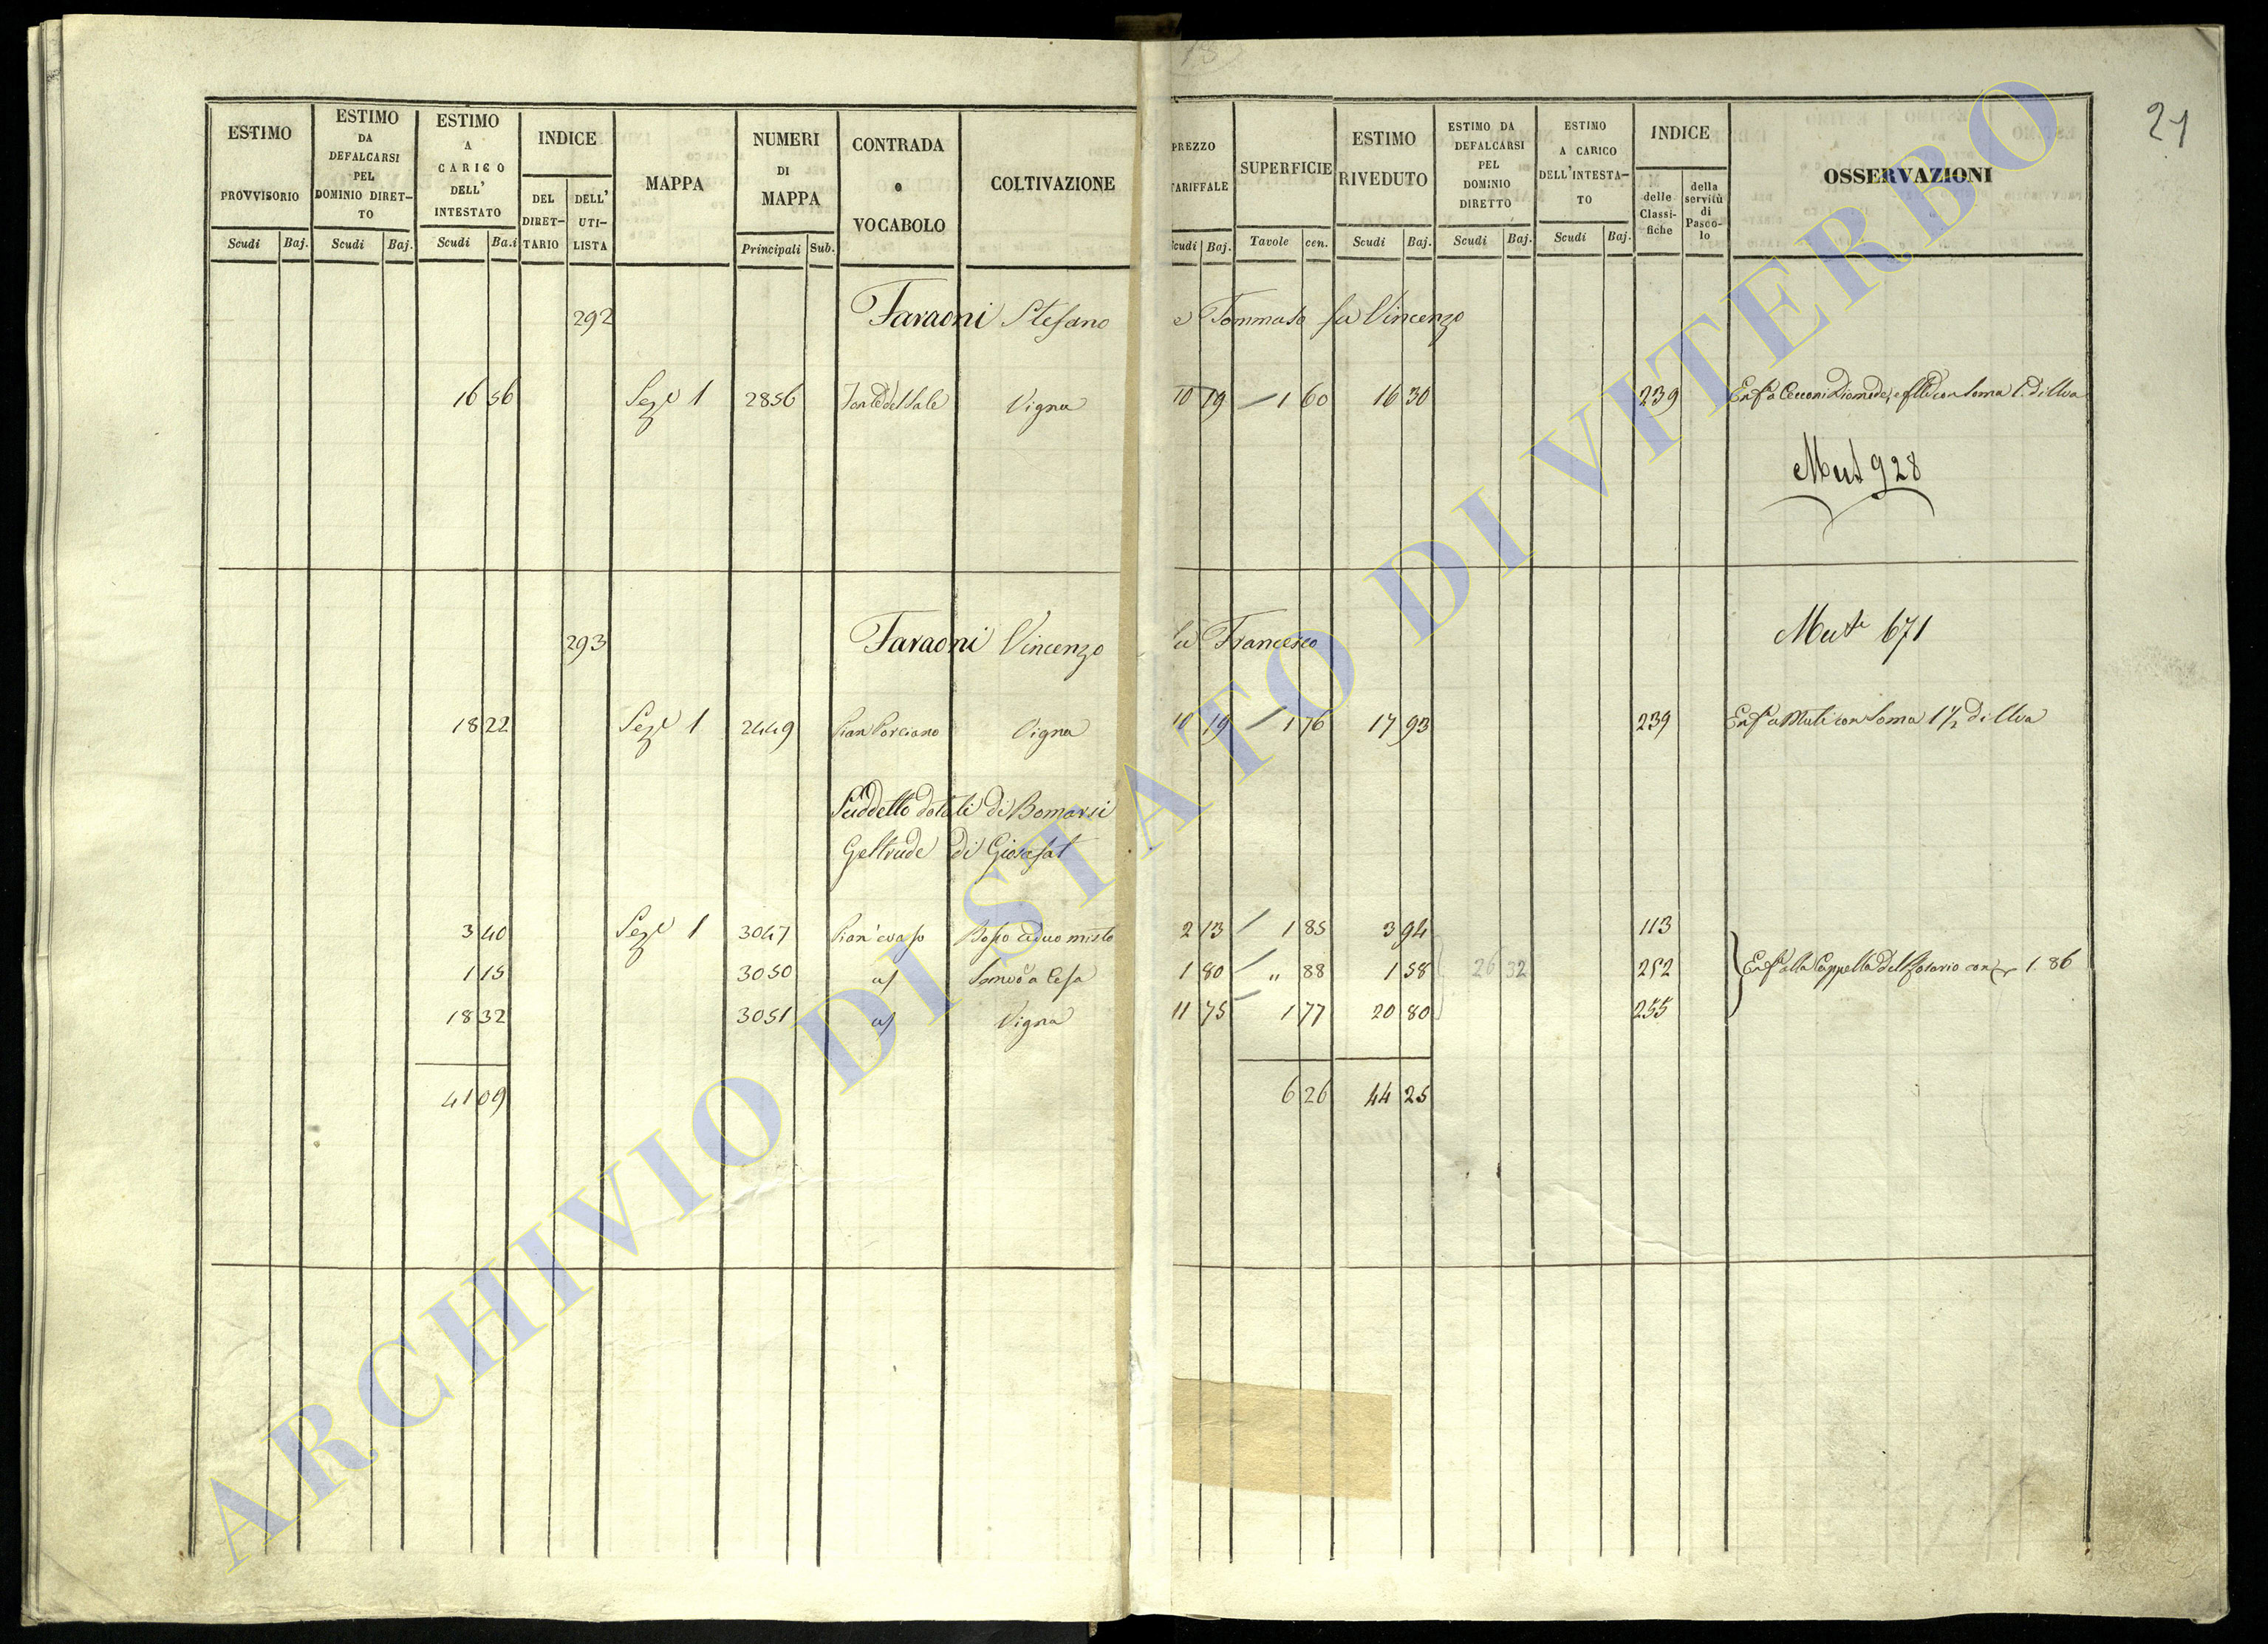 21
ESTIMO PROVVISORIO Scudi Baj.
ESTIMO DA DEFALCARSI PEL DOMINIO DIRET-TO Scudi Baj.
ESTIMO A CARICO DELL' INTESTATO Scudi Ba.i
INDICE DEL DIRET-TARIO DELL' UTI-LISTA
MAPPA
NUMERI DI MAPPA Principali Sub.
CONTRADA o VOCABOLO
COLTIVAZIONE
PREZZO TARIFFALE Scudi Baj.
SUPERFICIE Tavole cen.
ESTIMO RIVEDUTO Scudi Baj.
ESTIMO DA DEFALCARSI PEL DOMINIO DIRETTO Scudi Baj.
ESTIMO A CARICO DELL'INTESTA-TO Scudi Baj.
INDICE delle Classi-fiche della servitù di Pasco-lo
OSSERVAZIONI
292 Faraoni Stefano e Tommaso fu Vincenzo
16 56 Sez.e 1 2856 Fonte del Sale Vigna 10 19 1 60 16 30 239 Enf.a Cecconi Diomede, e con Soma 1. di Uva
Mut 928
293 Faraoni Vincenzo fu Francesco Mut.e 671
18 22 Sez.e 1 2449 Pian Porciano Vigna 10 19 1 76 17 93 239 Enf.a Muti con Soma 1 1/2 di Uva
Suddetto dotali di Bomarsi
Geltrude di Giosafat
3 40 Sez.e 1 3047 Bosco ceduo misto 2 13 1 85 3 94 113
1 15 3050 a/ 1 80 " 88 1 58 26 32 252 Enf.a alla Cappella del Rosario con 1. 86
18 32 3051 a/ Vigna 11 75 1 77 20 80 255
41 09 6 26 44 25
ARCHIVIO DI STATO DI VITERBO